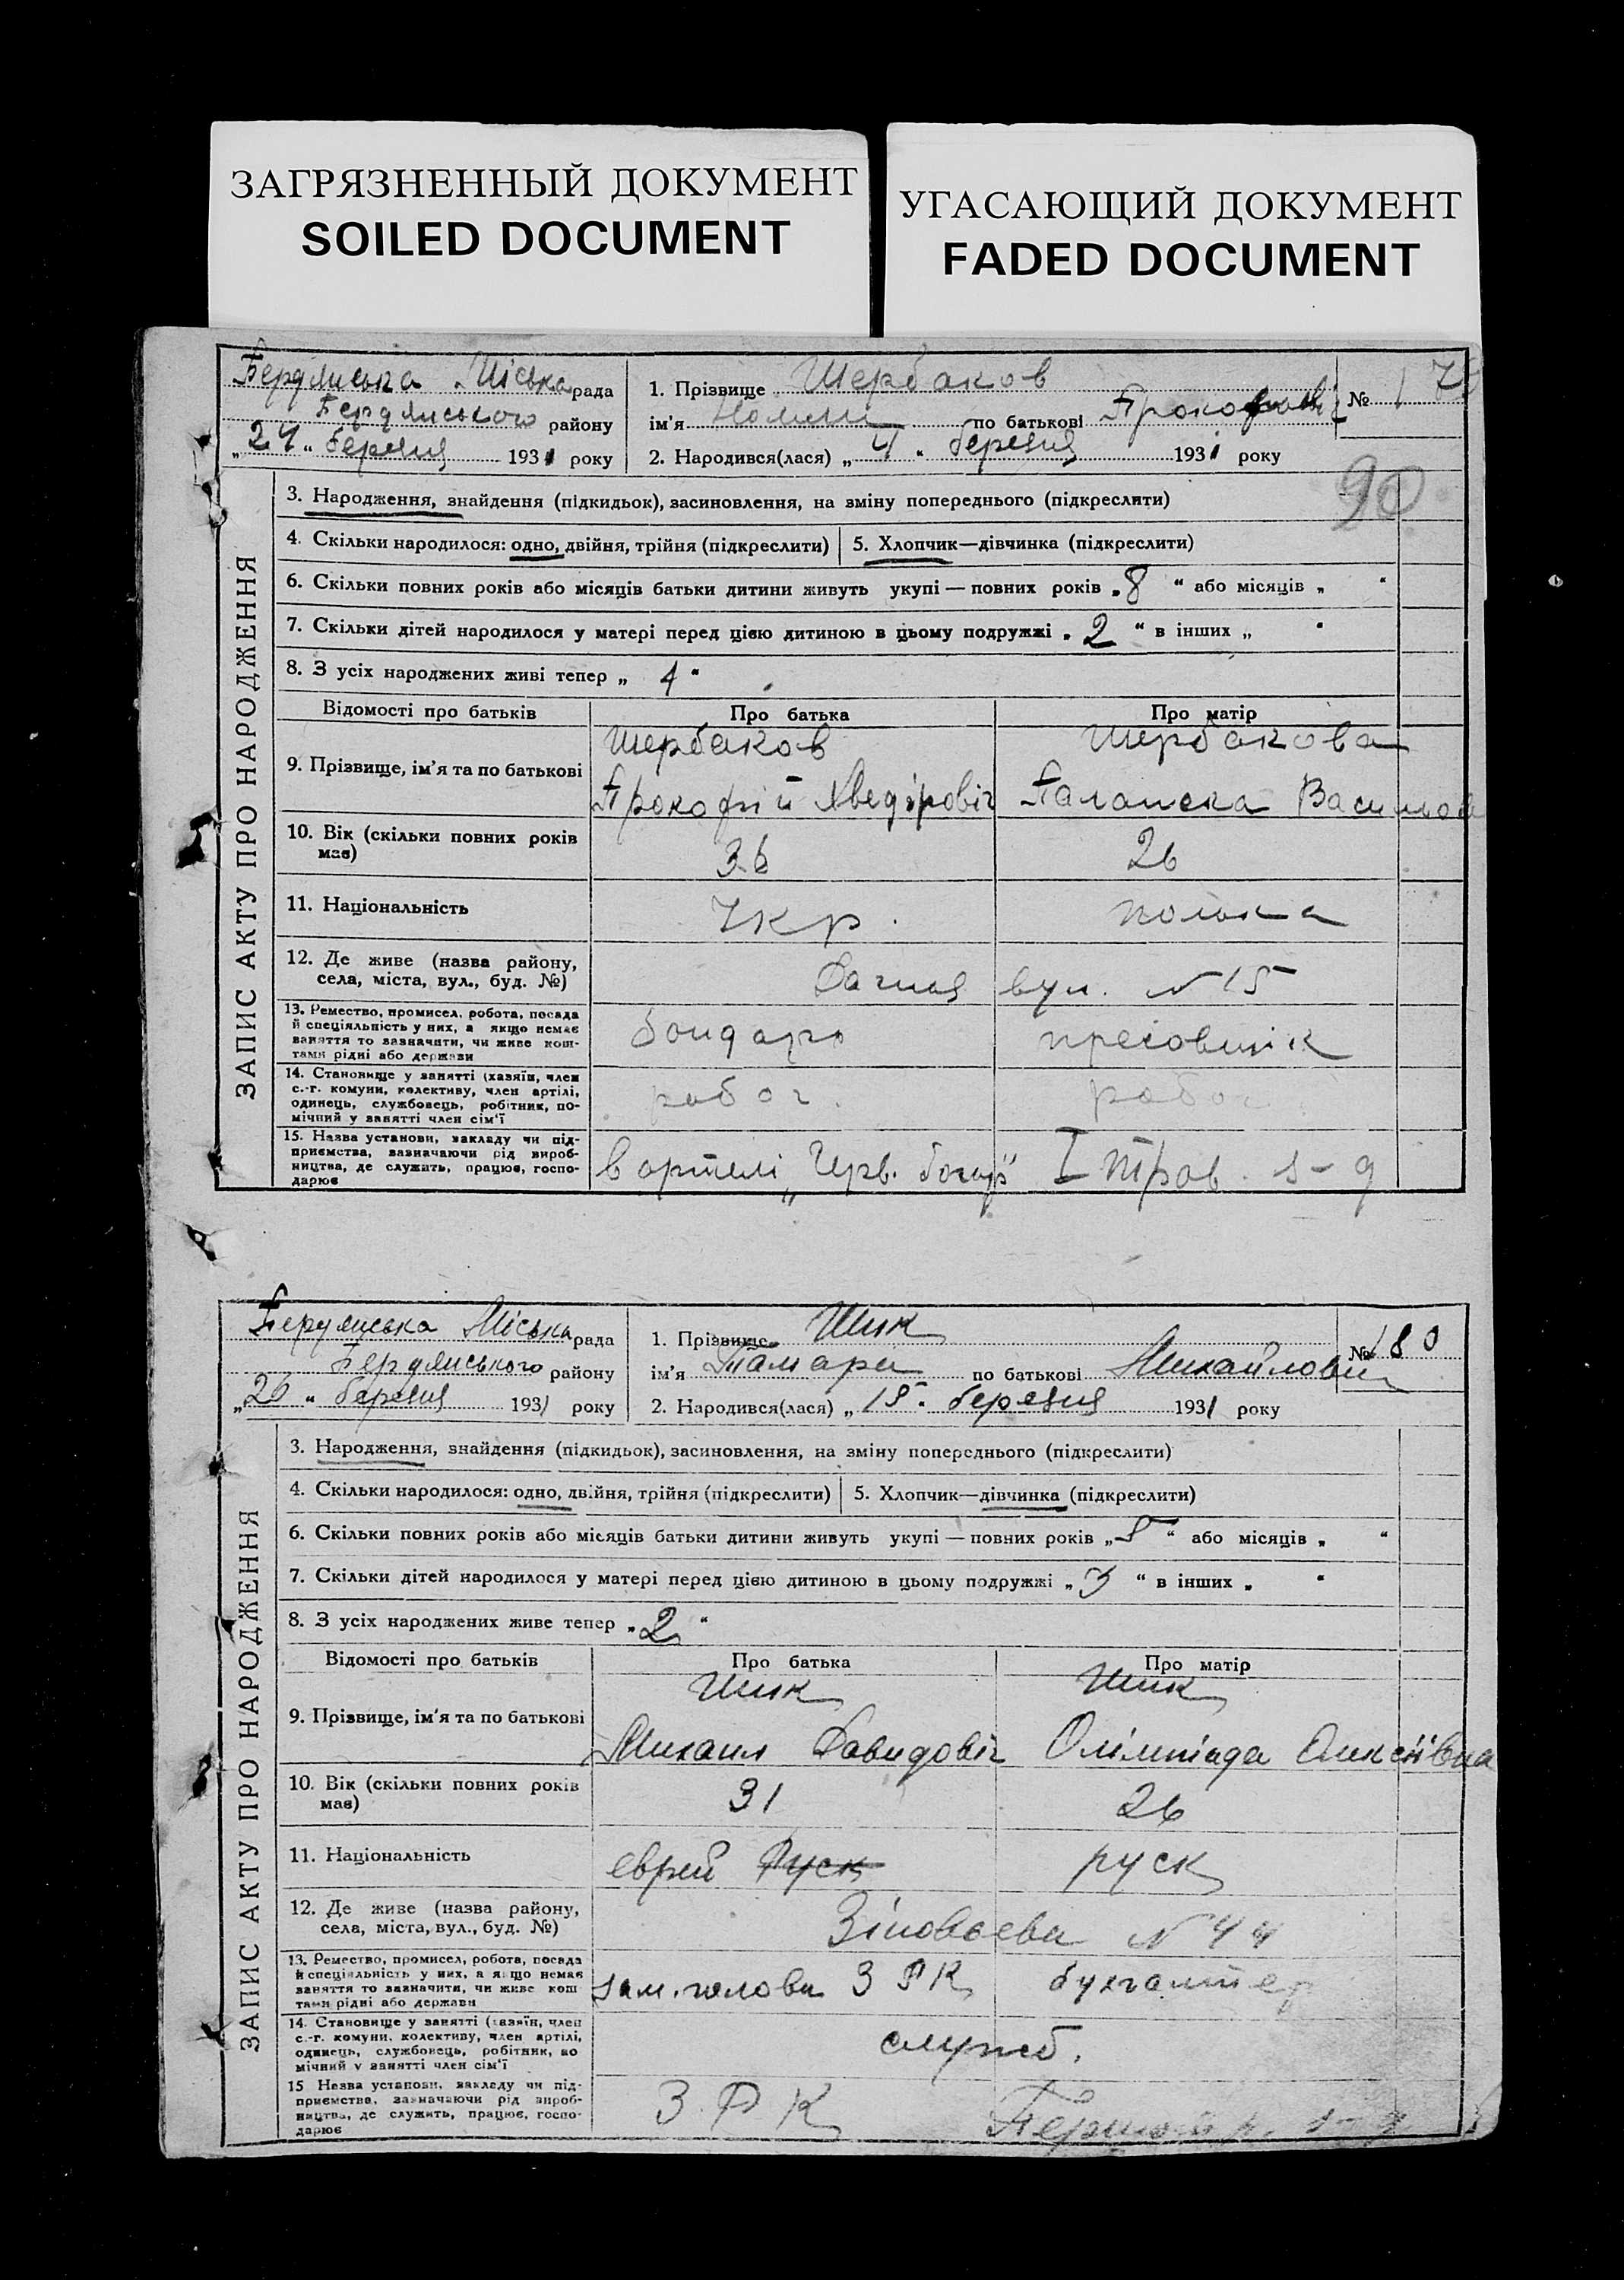 ЗАГРЯЗНЕННЫЙ ДОКУМЕНТ
SOILED DOCUMENT
УГАСАЮЩИЙ ДОКУМЕНТ
FADED DOCUMENT
Бердянська Міська рада
Бердянського району
„24“ березня 1931 року
1. Прізвище Щербаков
ім'я по батькові
2. Народився(лася) „4“ березня 1931 року
№ 17
90
ЗАПИС АКТУ ПРО НАРОДЖЕННЯ
3. Народження, знайдення (підкидьок), засиновлення, на зміну попереднього (підкреслити)
4. Скільки народилося: одно, двійня, трійня (підкреслити)
5. Хлопчик—дівчинка (підкреслити)
6. Скільки повних років або місяців батьки дитини живуть укупі — повних років „8“ або місяців „ “
7. Скільки дітей народилося у матері перед цією дитиною в цьому подружжі „2“ в інших „ “
8. З усіх народжених живі тепер „ “
Відомості про батьків Про батька Про матір
9. Прізвище, ім'я та по батькові
Щербаков Щербакова
Прокофій Хведірович Палажка
10. Вік (скільки повних років
має)
36 26
11. Національність Укр. полька
12. Де живе (назва району,
села, міста, вул., буд. №)
Дачна вул. № 15
13. Ремество, промисел, робота, посада
й спеціяльність у них, а якщо немає
заняття то зазначити, чи живе кош-
тами рідні або держави
бондарь пресовщік
14. Становище у занятті (хазяїн, член
с.-г. комуни, колективу, член артілі,
одинець, службовець, робітник, по-
мічний у занятті член сім'ї
робоч. робоч.
15. Назва установи, закладу чи під-
приємства, зазначаючи рід вироб-
ництва, де служить, працює, госпо-
дарює
в артелі „Черв. бондарь“ І Трав. з-д
Бердянська Міська рада
Бердянського району
„26“ березня 1931 року
1. Прізвище Шик
ім'я Тамара по батькові Михайловна
2. Народився(лася) „15“ березня 1931 року
№ 180
ЗАПИС АКТУ ПРО НАРОДЖЕННЯ
3. Народження, знайдення (підкидьок), засиновлення, на зміну попереднього (підкреслити)
4. Скільки народилося: одно, двійня, трійня (підкреслити)
5. Хлопчик—дівчинка (підкреслити)
6. Скільки повних років або місяців батьки дитини живуть укупі — повних років „ “ або місяців „ “
7. Скільки дітей народилося у матері перед цією дитиною в цьому подружжі „3“ в інших „ “
8. З усіх народжених живе тепер „2“
Відомості про батьків Про батька Про матір
9. Прізвище, ім'я та по батькові
Шик Шик
Михаил Давидовіч Олімпіада Олексіївна
10. Вік (скільки повних років
має)
31 26
11. Національність еврей Руск руск
12. Де живе (назва району,
села, міста, вул., буд. №)
Зіновьева № 44
13. Ремество, промисел, робота, посада
й спеціяльність у них, а якщо немає
заняття то зазначити, чи живе кош
тами рідні або держави
зам. голови З Р К бухгалтер
14. Становище у занятті (хазяїн, член
с.-г. комуни, колективу, член артілі,
одинець, службовець, робітник, по
мічний у занятті член сім'ї
служб.
15 Назва установи, закладу чи під-
приємства, зазначаючи рід вироб-
ництва, де служить, працює, госпо-
дарює
З. Р К з-д